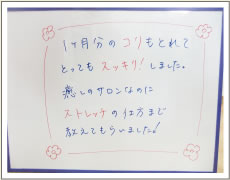 1ヶ月分のコリもとれて
とってもスッキリ!しました。
癒しのサロンなのに
ストレッチの仕方まで
教えてもらいました!